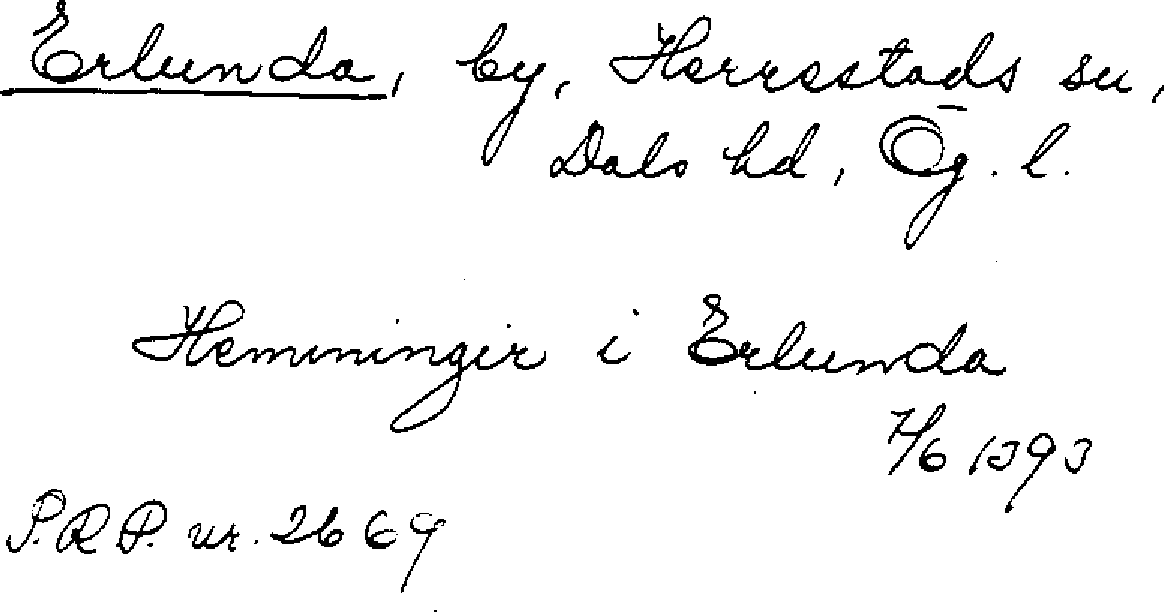 Erlunda, by, Herrestads sn,
Dals hd, Ög. l.
Hemminger i Erlunda
7/6 1393
P.R.P. nr. 2669